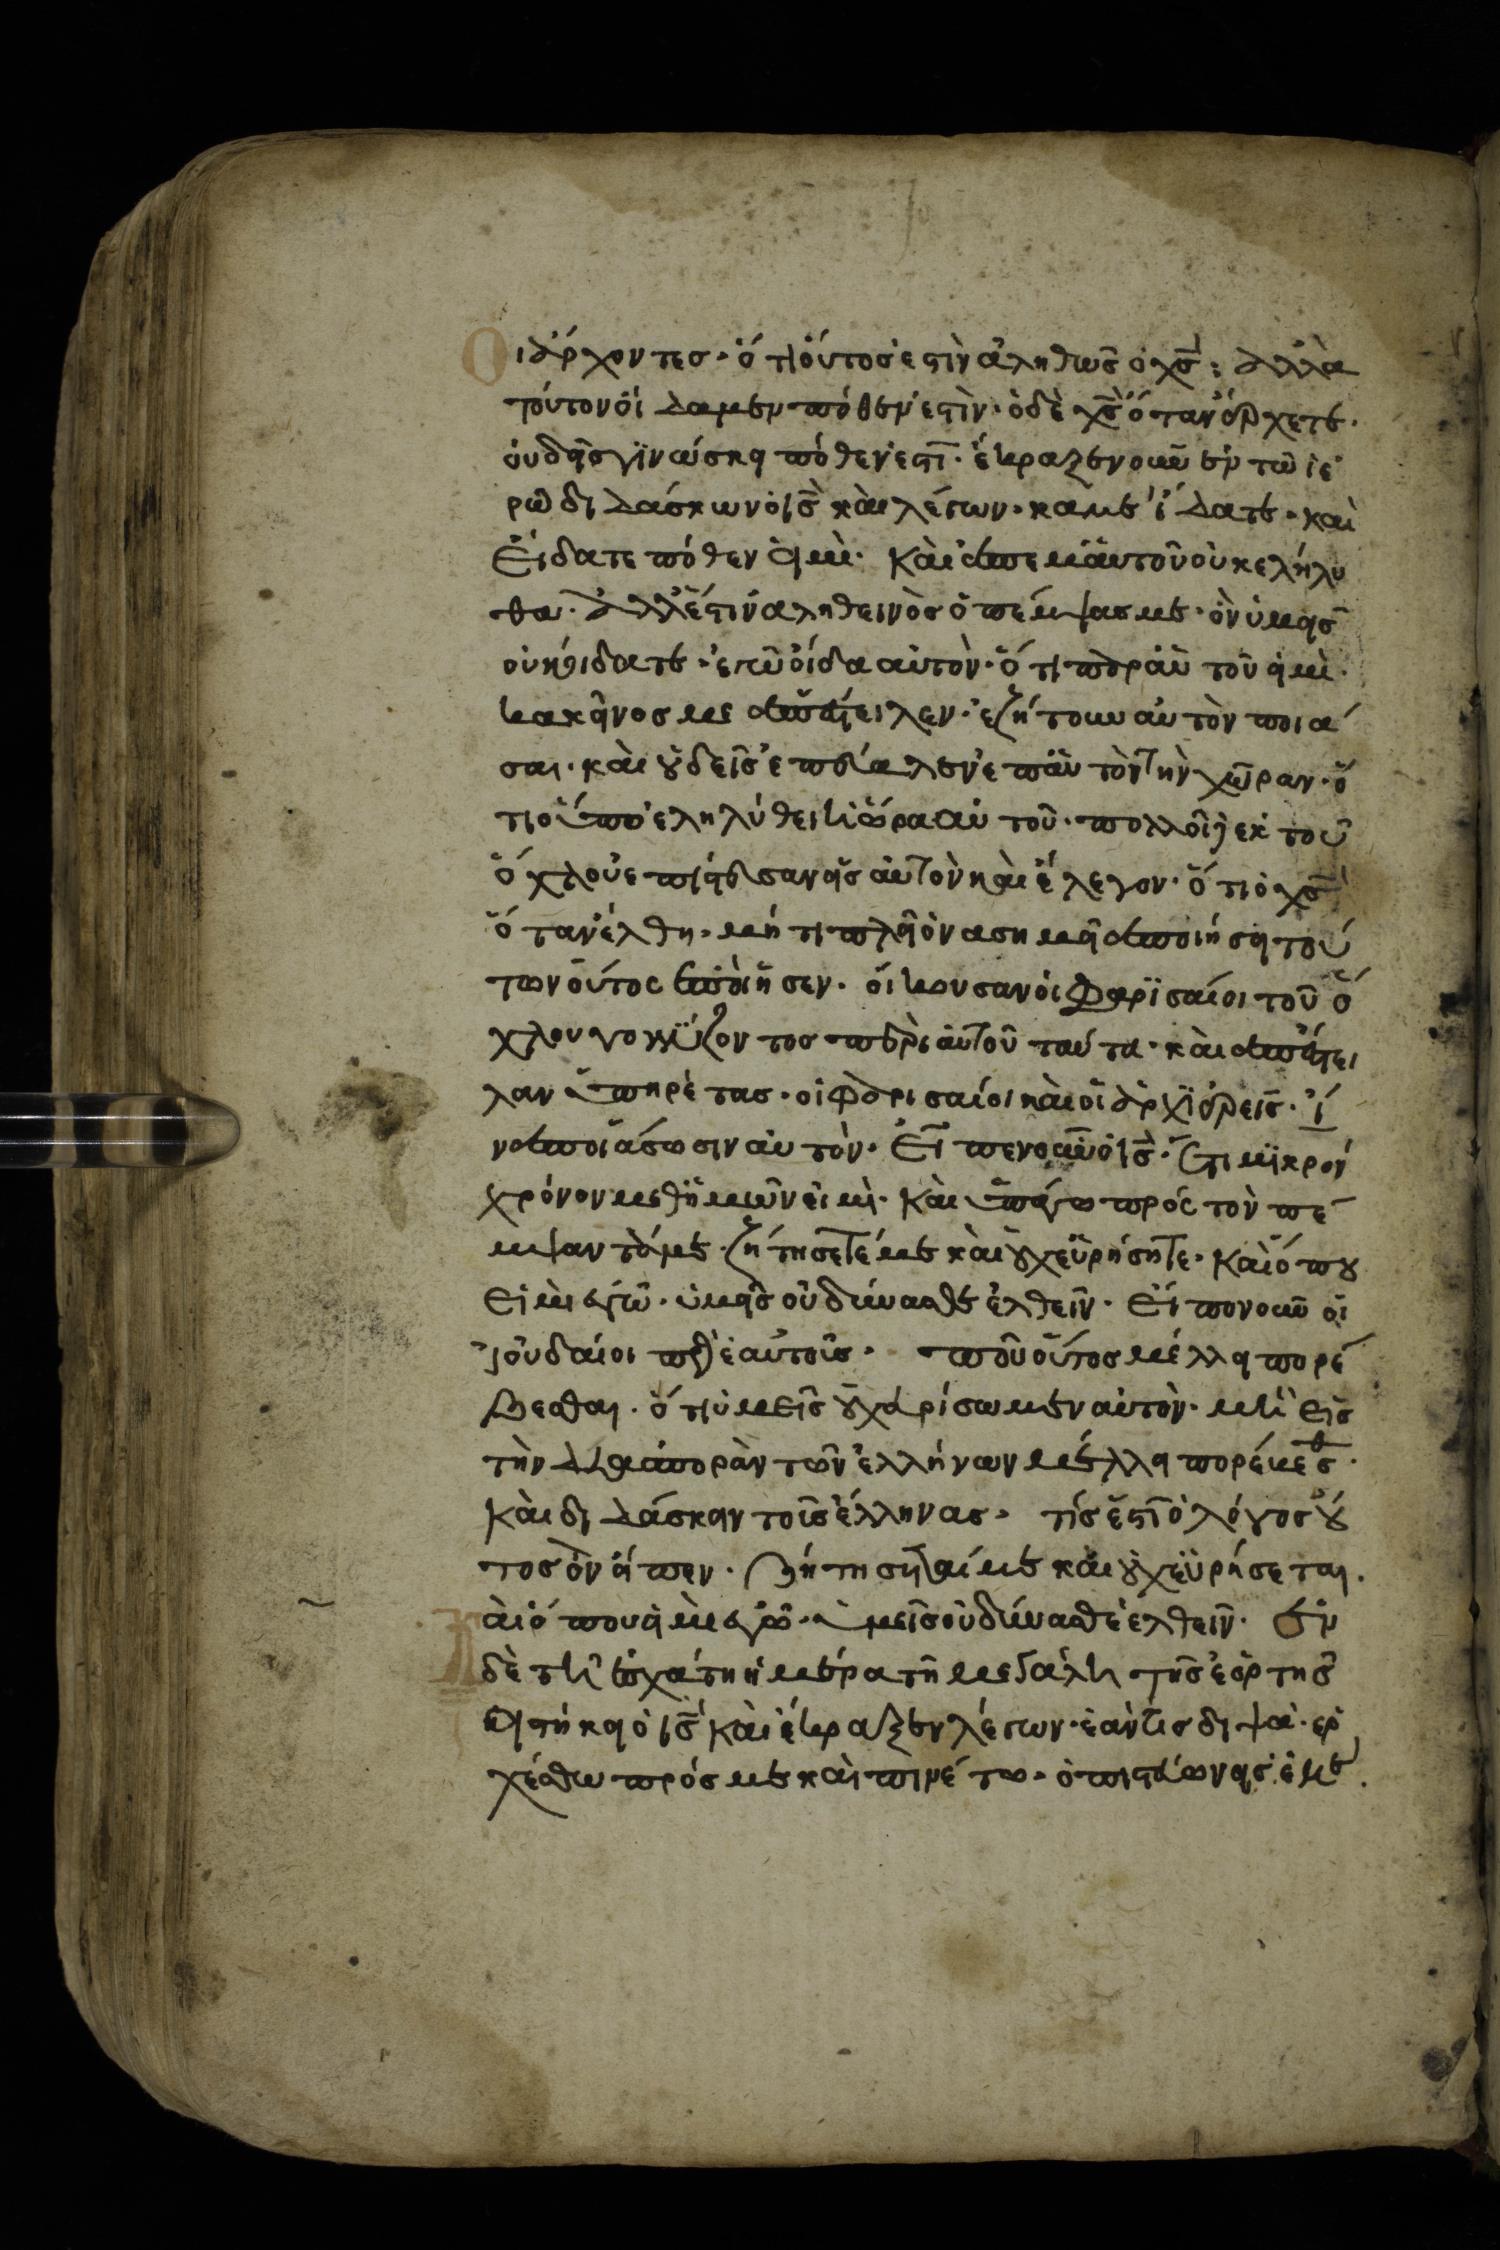 Οἱ ἄρχοντες· ὅτι οὗτός ἐστιν ἀληθῶς ὁ χς̅· ἀλλὰ
τοῦτον οἴδαμεν πόθεν ἐστὶν· ὁ δὲ χς̅ ὅταν ἔρχετε·
οὐδεῖς γϊνώσκει πόθεν ἐστῖ· ἔκραξεν οὖν ἐν τῶ ἱε
ρῶ διδάσκων ὁ ις̅ καὶ λέγων· καμὲ ἴδατε· καὶ
Εἴδατε πόθεν εἰμὶ· Καὶ ἀπεμαυτοῦ οὐκ ἐλήλυ
θα· ἀλλ' ἔστιν ἀληθεινὸς ὁ πέμψας με· ὃν ὑμεῖς
οὐκ οἴδατε· ἐγὼ οἶδα αὐτὸν· ὅτι παρ αὐτοῦ εἰμὶ·
κακεῖνος με ἀπέστειλεν· ἐζήτουν αὐτὸν ποιά
σαι· καὶ οὐδεῖς ἐπέβαλεν ἐπ αὐτὸν τὴν χῶραν· ὅ
τι οὔπο ἐληλύθει ἡ ὥρα αὐτοῦ· πολλοὶ δὲ ἐκ τοῦ
ὄχλου ἐπίστευσαν εἰς αὐτὸν καὶ ἔλεγον· ὅτι ὁ χς̅
ὅταν ἔλθη· μή τι πλεῖονα σημεῖα ποιήσει τού
των οὗτος ἐποίησεν· οἴκουσαν οἱ Φαρϊσαίοι τοῦ ὄ
χλου γογγΰζοντος περὶ αὐτοῦ ταύτα· καὶ ἀπέστει
λαν ὑπηρέτας· οἱ φαρισαίοι καὶ οἱ ἀρχϊερεῖς· ἵ
να ποιάσωσιν αὐτὸν· Εἶπεν οὖν ὁ ις̅· Ἔτι μϊκρόν
χρόνον μεθ ἡμῶν εἰμὶ· Καὶ ὑπάγω πρός τὸν πέ
μψαντά με· ζητήσετέ με καὶ οὐχ εὑρήσητε· Καὶ ὅπου
Εἰμὶ ἐγῶ· ὑμεῖς οὐ δύνασθε ἐλθεῖν· Εἴπον οὖν οἱ
Ἰουδαίοι πρὸς ἑαὐτοῖς· ποῦ οὗτος μέλλει πορέ
βεσθαι· ὅτι ὑμεῖς οὐχ αρίσωμεν αὐτὸν· μὴ εἰς
τὴν διασποράν τῶν ἑλλήνων μέλλει πορέυεσθ·
Καὶ διδάσκειν τοῖς ἕλληνας· τίς ἐστῖ ὁ λόγος οὗ
τος ὃν εἴπεν· Ζητήσηταί με καὶ οὐχ εὑρήσεται.
Καὶ ὅπου εἰμὶ ἐγῶ· ὑμεῖς οὐ δύνασθε ἐλθεῖν· Ἐν
δὲ τῆ ἐσχάτη ἡμέρα τῆ μεγάλη τῆς ἑορτῆς
Εἱστήκει ὁ ις̅ καὶ ἔκραξεν λέγων· ἐάν τις διψᾶ· ἐρ
χέσθω πρός με καὶ πινέτω· ὁ πιστεύων εἰς ἐμὲ·